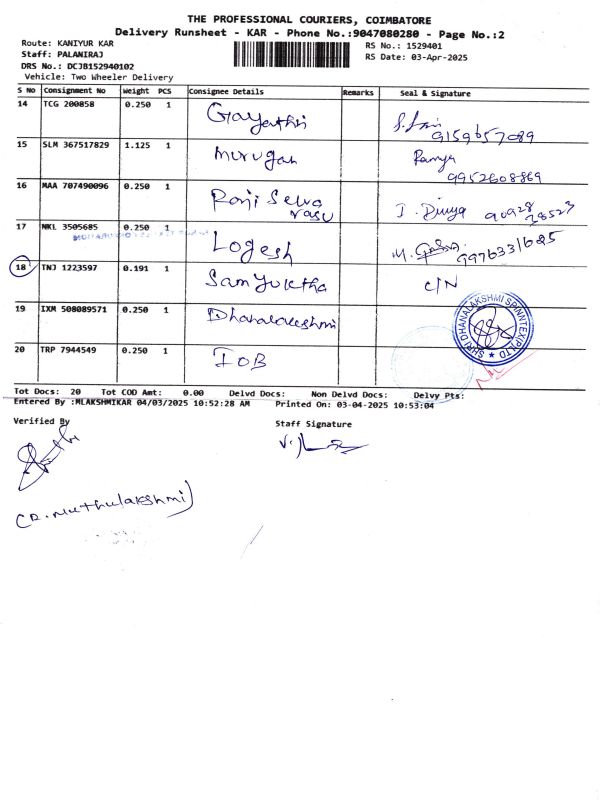 THE PROFESSIONAL COURIERS, COIMBATORE
Delivery Runsheet - KAR - Phone No.:9047080280 - Page No.:2
Route: KANIYUR KAR
Staff: PALANIRAJ
DRS No.: DCJB152940102
Vehicle: Two Wheeler Delivery
RS No.: 1529401
RS Date: 03-Apr-2025
S No Consignment No Weight PCS Consignee Details Remarks Seal & Signature
14 TCG 200858 0.250 1 Gayathri 9159657089
15 SLM 367517829 1.125 1 Murugan Ramya 9952608869
16 MAA 707490096 0.250 1 Ranji Selva vasu I. Divya 90928 28523
17 NKL 3505685 0.250 1 Logesh 9976331625
18 TNJ 1223597 0.191 1 Samyuktha C/N
19 IXM 508089571 0.250 1 Dhanalakshmi
SHRI DHANALAKSHMI SPINNTEX(P)LTD
20 TRP 7944549 0.250 1 IOB
Tot Docs: 20 Tot COD Amt: 0.00 Delvd Docs: Non Delvd Docs: Delvy Pts:
Entered By :MLAKSHMIKAR 04/03/2025 10:52:28 AM Printed On: 03-04-2025 10:53:04
Verified By
Staff Signature
(R. Muthulakshmi)